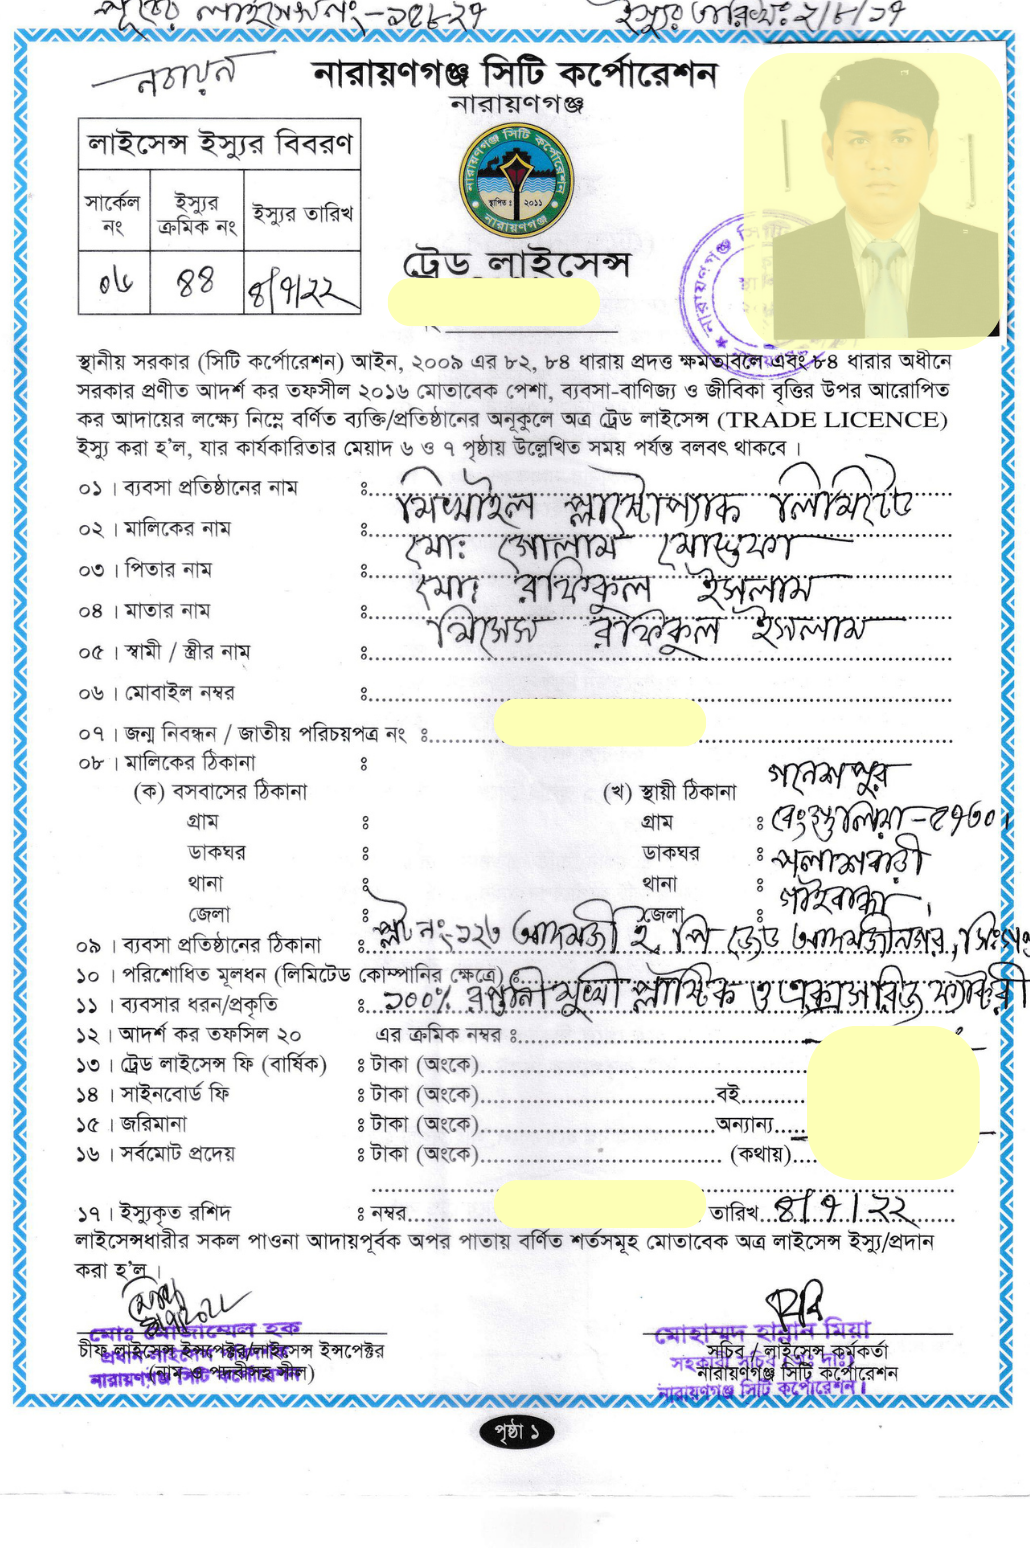 পূর্বের লাইসেন্স নং-১৫৮২৭ ইস্যুর তারিখঃ ২/৮/১৭
নবায়ন
নারায়ণগঞ্জ সিটি কর্পোরেশন
নারায়ণগঞ্জ
লাইসেন্স ইস্যুর বিবরণ
সার্কেল নং ইস্যুর ক্রমিক নং ইস্যুর তারিখ
০৬ ৪৪ ৪/৭/২২
নারায়ণগঞ্জ সিটি কর্পোরেশন
স্থাপিত : ২০১১
নারায়ণগঞ্জ
ট্রেড লাইসেন্স
নারায়ণগঞ্জ সিটি
স্থানীয় সরকার (সিটি কর্পোরেশন) আইন, ২০০৯ এর ৮২, ৮৪ ধারায় প্রদত্ত ক্ষমতাবলে এবং ৮৪ ধারার অধীনে
সরকার প্রণীত আদর্শ কর তফসীল ২০১৬ মোতাবেক পেশা, ব্যবসা-বাণিজ্য ও জীবিকা বৃত্তির উপর আরোপিত
কর আদায়ের লক্ষ্যে নিম্নে বর্ণিত ব্যক্তি/প্রতিষ্ঠানের অনূকুলে অত্র ট্রেড লাইসেন্স (TRADE LICENCE)
ইস্যু করা হ'ল, যার কার্যকারিতার মেয়াদ ৬ ও ৭ পৃষ্ঠায় উল্লেখিত সময় পর্যন্ত বলবৎ থাকবে।
০১। ব্যবসা প্রতিষ্ঠানের নাম ঃ মিখাইল প্লাস্টোপ্যাক লিমিটেড
০২। মালিকের নাম ঃ মোঃ গোলাম মোস্তফা
০৩। পিতার নাম ঃ মোঃ রফিকুল ইসলাম
০৪। মাতার নাম ঃ মিসেস রফিকুল ইসলাম
০৫। স্বামী / স্ত্রীর নাম ঃ
০৬। মোবাইল নম্বর ঃ
০৭। জন্ম নিবন্ধন / জাতীয় পরিচয়পত্র নং ঃ
০৮। মালিকের ঠিকানা ঃ
(ক) বসবাসের ঠিকানা (খ) স্থায়ী ঠিকানা
গ্রাম ঃ গ্রাম ঃ গনেশপুর
ডাকঘর ঃ ডাকঘর ঃ
থানা ঃ থানা ঃ পলাশবাড়ী
জেলা ঃ জেলা ঃ গাইবান্ধা
০৯। ব্যবসা প্রতিষ্ঠানের ঠিকানা ঃ প্লট নং-১২৬ আদমজী ই,পি জেড আদমজীনগর,
১০। পরিশোধিত মূলধন (লিমিটেড কোম্পানির ক্ষেত্রে) ঃ
১১। ব্যবসার ধরন/প্রকৃতি ঃ ১০০% রপ্তানীমুখী প্লাস্টিক ও এক্সেসরিজ ফ্যাক্টরী
১২। আদর্শ কর তফসিল ২০ এর ক্রমিক নম্বর ঃ
১৩। ট্রেড লাইসেন্স ফি (বার্ষিক) ঃ টাকা (অংকে)
১৪। সাইনবোর্ড ফি ঃ টাকা (অংকে) বই
১৫। জরিমানা ঃ টাকা (অংকে) অন্যান্য
১৬। সর্বমোট প্রদেয় ঃ টাকা (অংকে) (কথায়)
১৭। ইস্যুকৃত রশিদ ঃ নম্বর তারিখ ৪/৭/২২
লাইসেন্সধারীর সকল পাওনা আদায়পূর্বক অপর পাতায় বর্ণিত শর্তসমূহ মোতাবেক অত্র লাইসেন্স ইস্যু/প্রদান
করা হ'ল।
মোঃ মোজাম্মেল হক মোহাম্মদ হান্নান মিয়া
চীফ লাইসেন্স ইন্সপেক্টর/লাইসেন্স ইন্সপেক্টর সচিব / লাইসেন্স কর্মকর্তা
(নাম ও পদবীসহ সীল) নারায়ণগঞ্জ সিটি কর্পোরেশন
নারায়ণগঞ্জ সিটি কর্পোরেশন নারায়ণগঞ্জ সিটি কর্পোরেশন।
পৃষ্ঠা ১